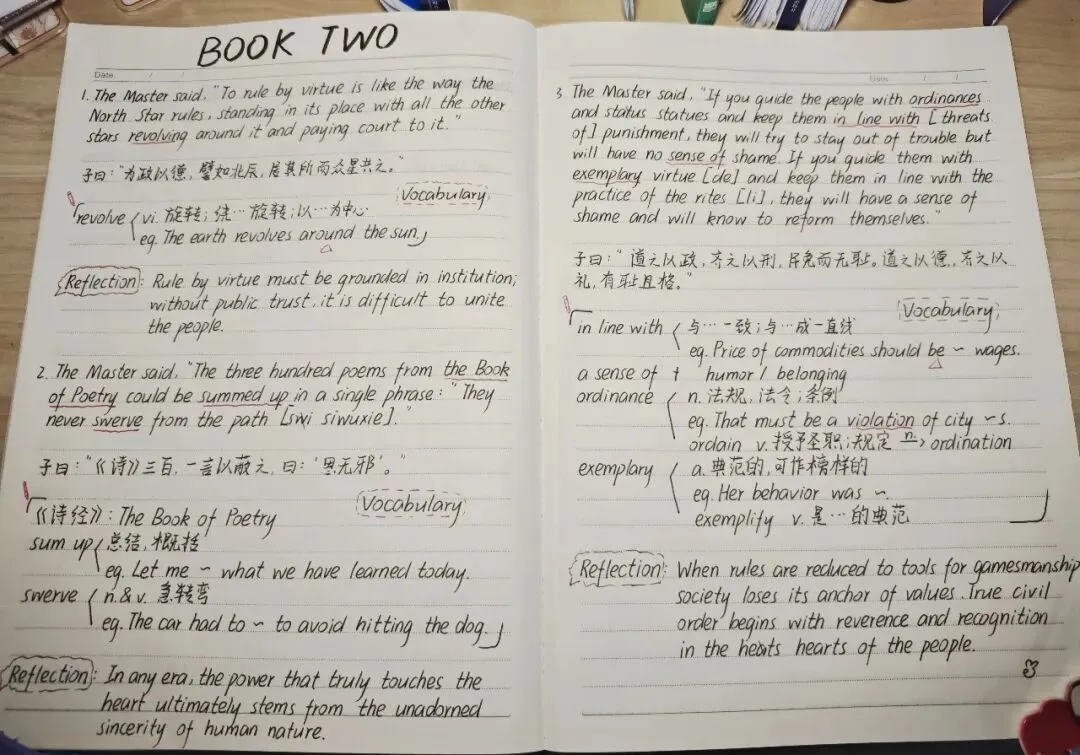 BOOK TWO
Date / /
1. The Master said, "To rule by virtue is like the way the
North Star rules, standing in its place with all the other
stars revolving around it and paying court to it."
子曰:"为政以德,譬如北辰,居其所而众星共之。"
Vocabulary
revolve vi. 旋转;绕…旋转;以…为中心
eg. The earth revolves around the sun.
Reflection: Rule by virtue must be grounded in institution;
without public trust, it is difficult to unite
the people.
2. The Master said, "The three hundred poems from the Book
of Poetry could be summed up in a single phrase: "They
never swerve from the path [swi siwuxie]."
子曰:"《诗》三百,一言以蔽之,曰:'思无邪'。"
Vocabulary
《诗经》: The Book of Poetry
sum up 总结,概括
eg. Let me ~ what we have learned today.
swerve n.& v. 急转弯
eg. The car had to ~ to avoid hitting the dog.
Reflection: In any era, the power that truly touches the
heart ultimately stems from the unadorned
sincerity of human nature.
Date / /
3 The Master said, "If you guide the people with ordinances
and status statues and keep them in line with [threats
of] punishment, they will try to stay out of trouble but
will have no sense of shame. If you guide them with
exemplary virtue [de] and keep them in line with the
practice of the rites [li], they will have a sense of
shame and will know to reform themselves."
子曰:"道之以政,齐之以刑,民免而无耻。道之以德,齐之以
礼,有耻且格。"
Vocabulary
in line with 与…一致;与…成一直线
eg. Price of commodities should be ~ wages.
a sense of + humor / belonging
ordinance n. 法规,法令;条例
eg. That must be a violation of city ~s.
ordain v. 授予圣职;规定 n. → ordination
exemplary a. 典范的,可作榜样的
eg. Her behavior was ~.
exemplify v. 是…的典范
Reflection: When rules are reduced to tools for gamesmanship
society loses its anchor of values. True civil
order begins with reverence and recognition
in the hearts of the people.